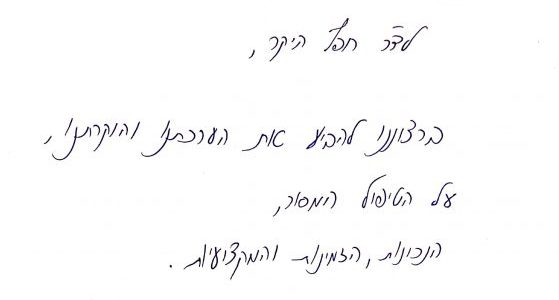 לד״ר חפץ היקר,
ברצוננו להביע את הערכתנו והוקרתנו,
על הטיפול המסור,
הנכונות, הזמינות והמקצועיות.